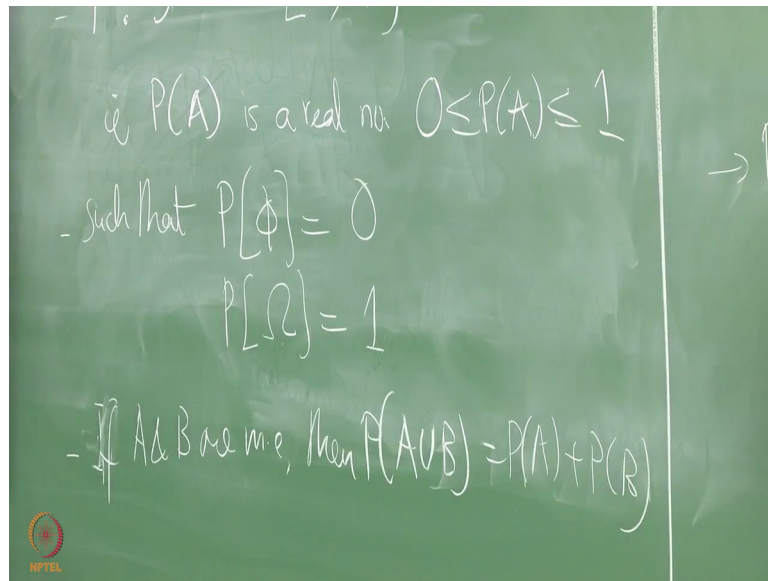 ie P(A) is a real no. 0≤P(A)≤ 1
- such that P[Φ] = 0
P[Ω] = 1
- If A & B are m.e, then P(A∪B) = P(A)+P(B)
NPTEL